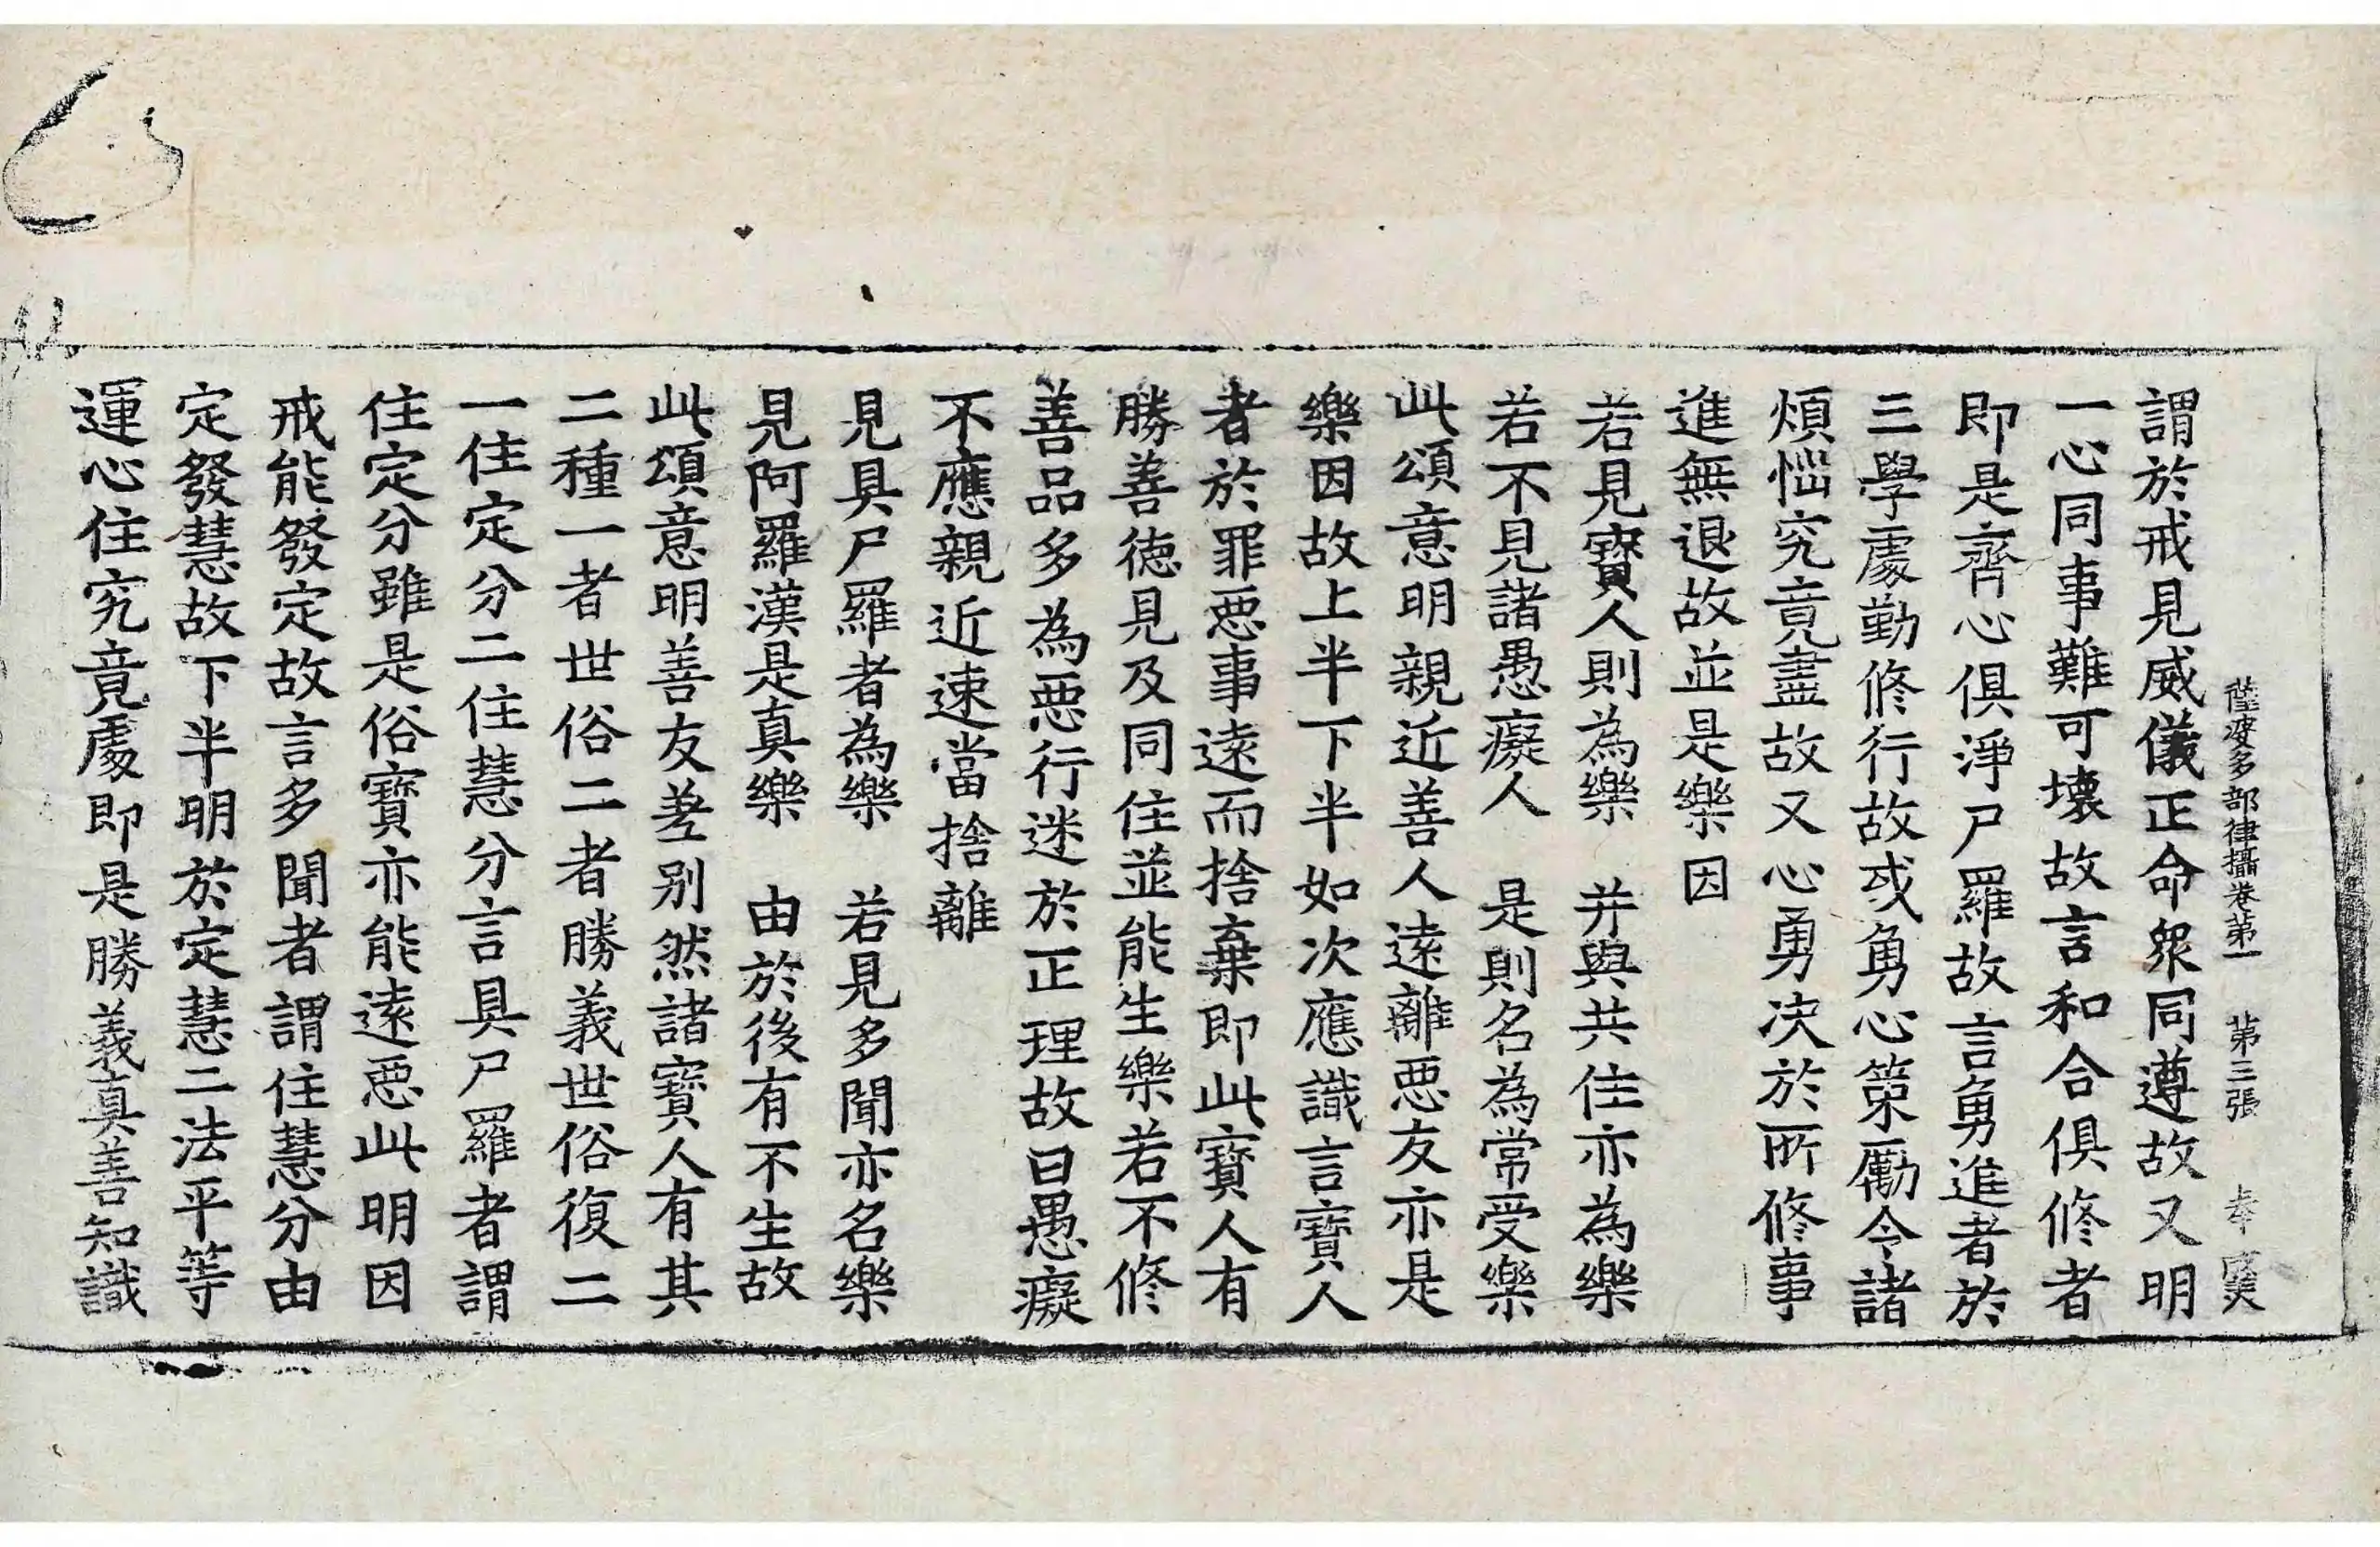 薩婆多部律攝卷第一　第三張　奉
謂於戒見威儀正命衆同遵故又明
一心同事難可壞故言和合俱修者
即是齊心俱淨尸羅故言勇進者於
三學處勤修行故或勇心策勵令諸
煩惱究竟盡故又心勇决於所修事
進無退故並是樂因
若見寶人則為樂　并與共住亦為樂
若不見諸愚癡人　是則名為常受樂
此頌意明親近善人遠離惡友亦是
樂因故上半下半如次應識言寶人
者於罪惡事遠而捨棄即此寶人有
勝善德見及同住並能生樂若不修
善品多為惡行迷於正理故曰愚癡
不應親近速當捨離
見具尸羅者為樂　若見多聞亦名樂
見阿羅漢是真樂　由於後有不生故
此頌意明善友差別然諸寶人有其
二種一者世俗二者勝義世俗復二
一住定分二住慧分言具尸羅者謂
住定分雖是俗寶亦能遠惡此明因
戒能發定故言多聞者謂住慧分由
定發慧故下半明於定慧二法平等
運心住究竟處即是勝義真善知識